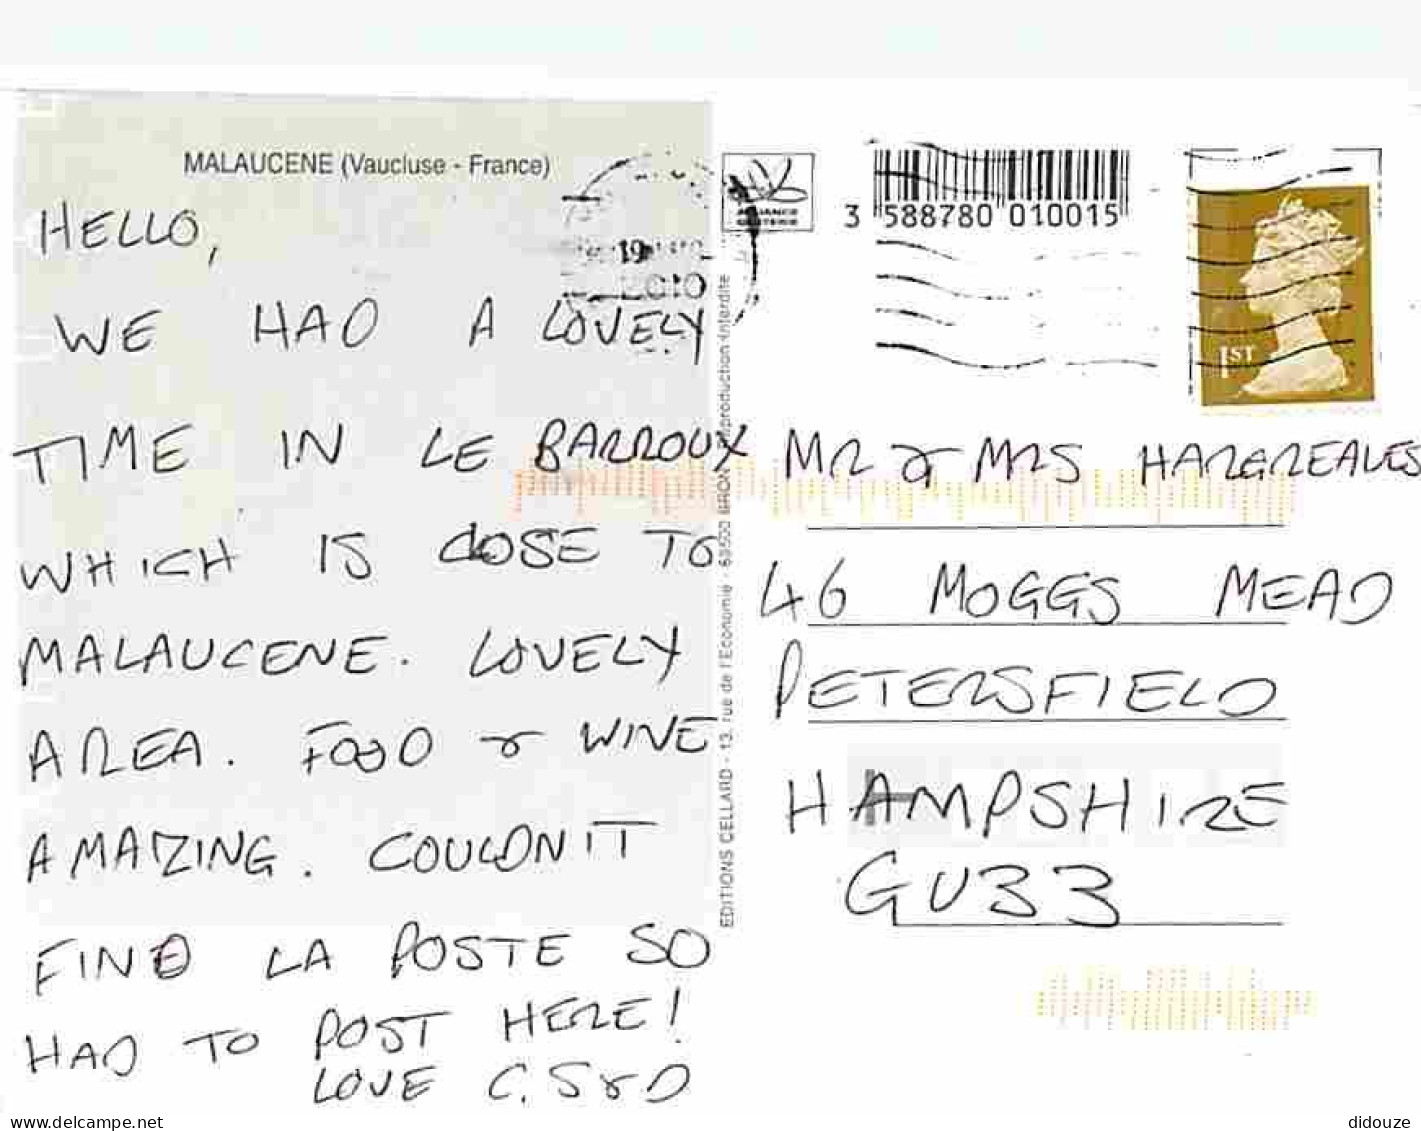 MALAUCENE (Vaucluse - France)
HELLO,
WE HAD A LOVELY
TIME IN LE BARROUX
WHICH IS CLOSE TO
MALAUCENE. LOVELY
AREA. FOOD & WINE
AMAZING. COULDN'T
FIND LA POSTE SO
HAD TO POST HERE!
LOVE C, S & D
EDITIONS CELLARD - 13, rue de l'Economie - 69500 BRON Reproduction interdite
19
2010
3 588780 010015
1ST
MR & MRS HARGREAVES
46 MOGGS MEAD
PETERSFIELD
HAMPSHIRE
GU33
www.delcampe.net
didouze